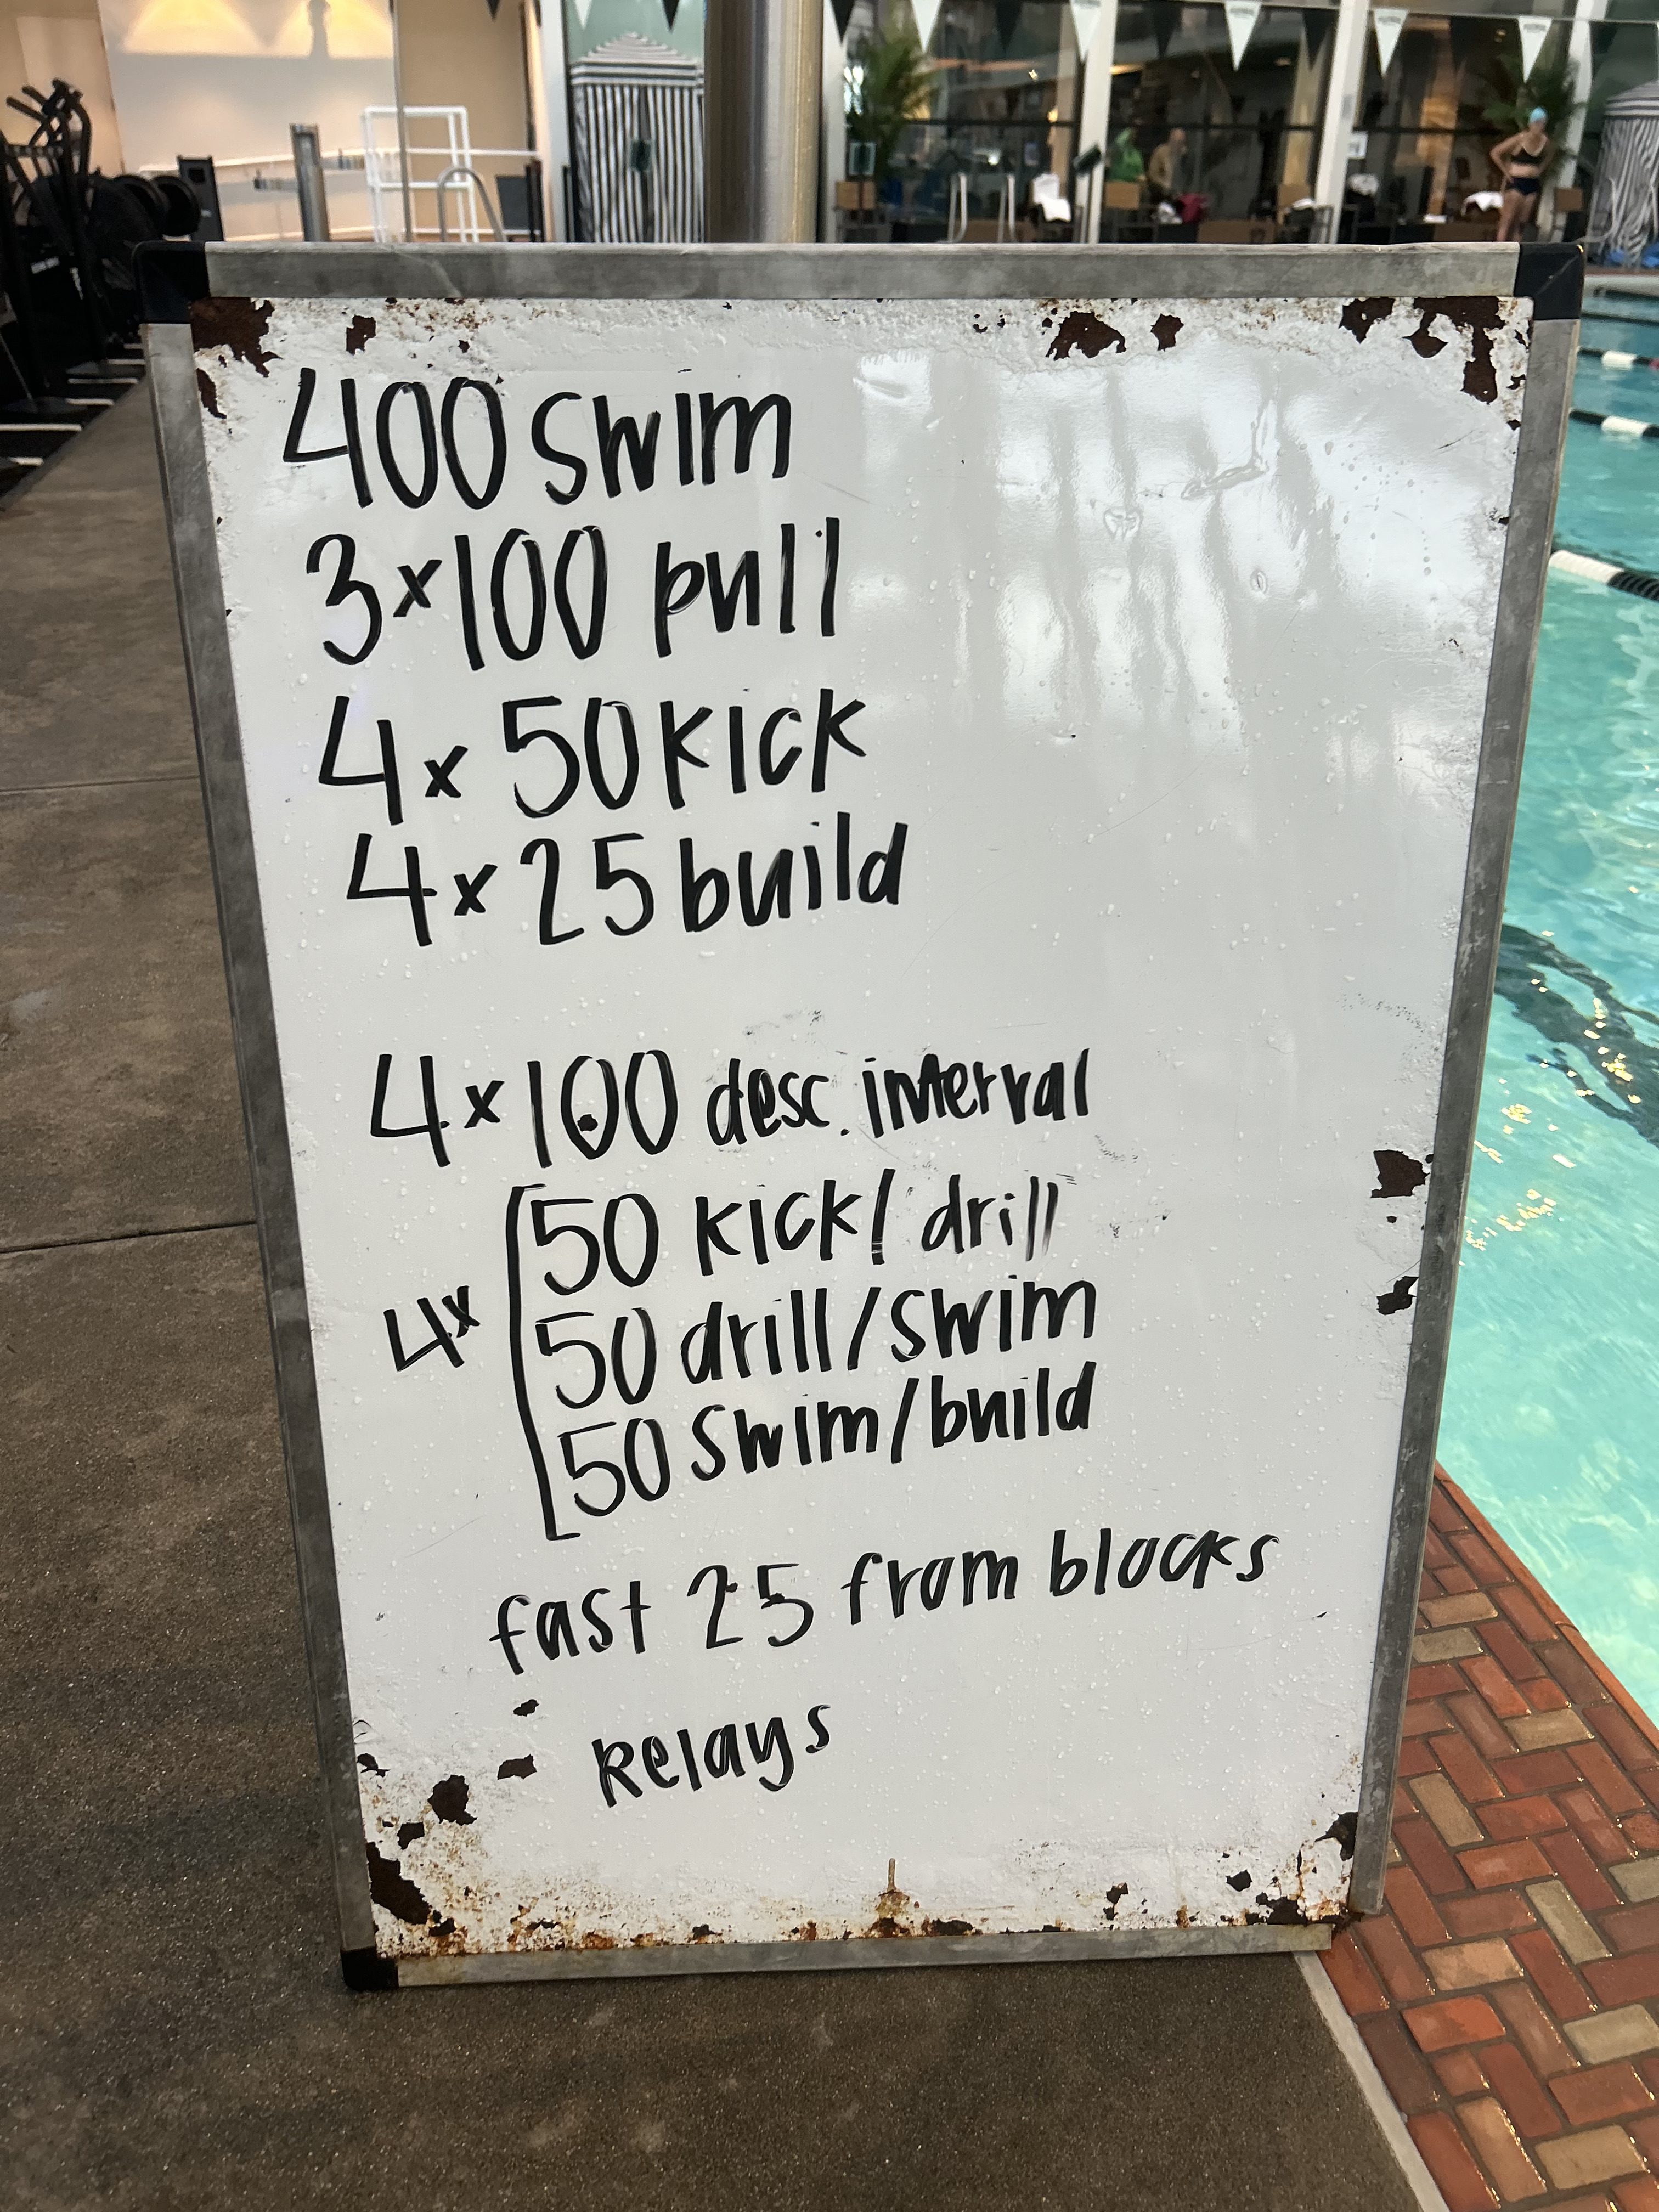 400 swim
3x100 pull
4x 50 kick
4x 25 build
4x100 desc. interval
4x
50 kick/ drill
50 drill/swim
50 swim/build
fast 25 from blocks
Relays